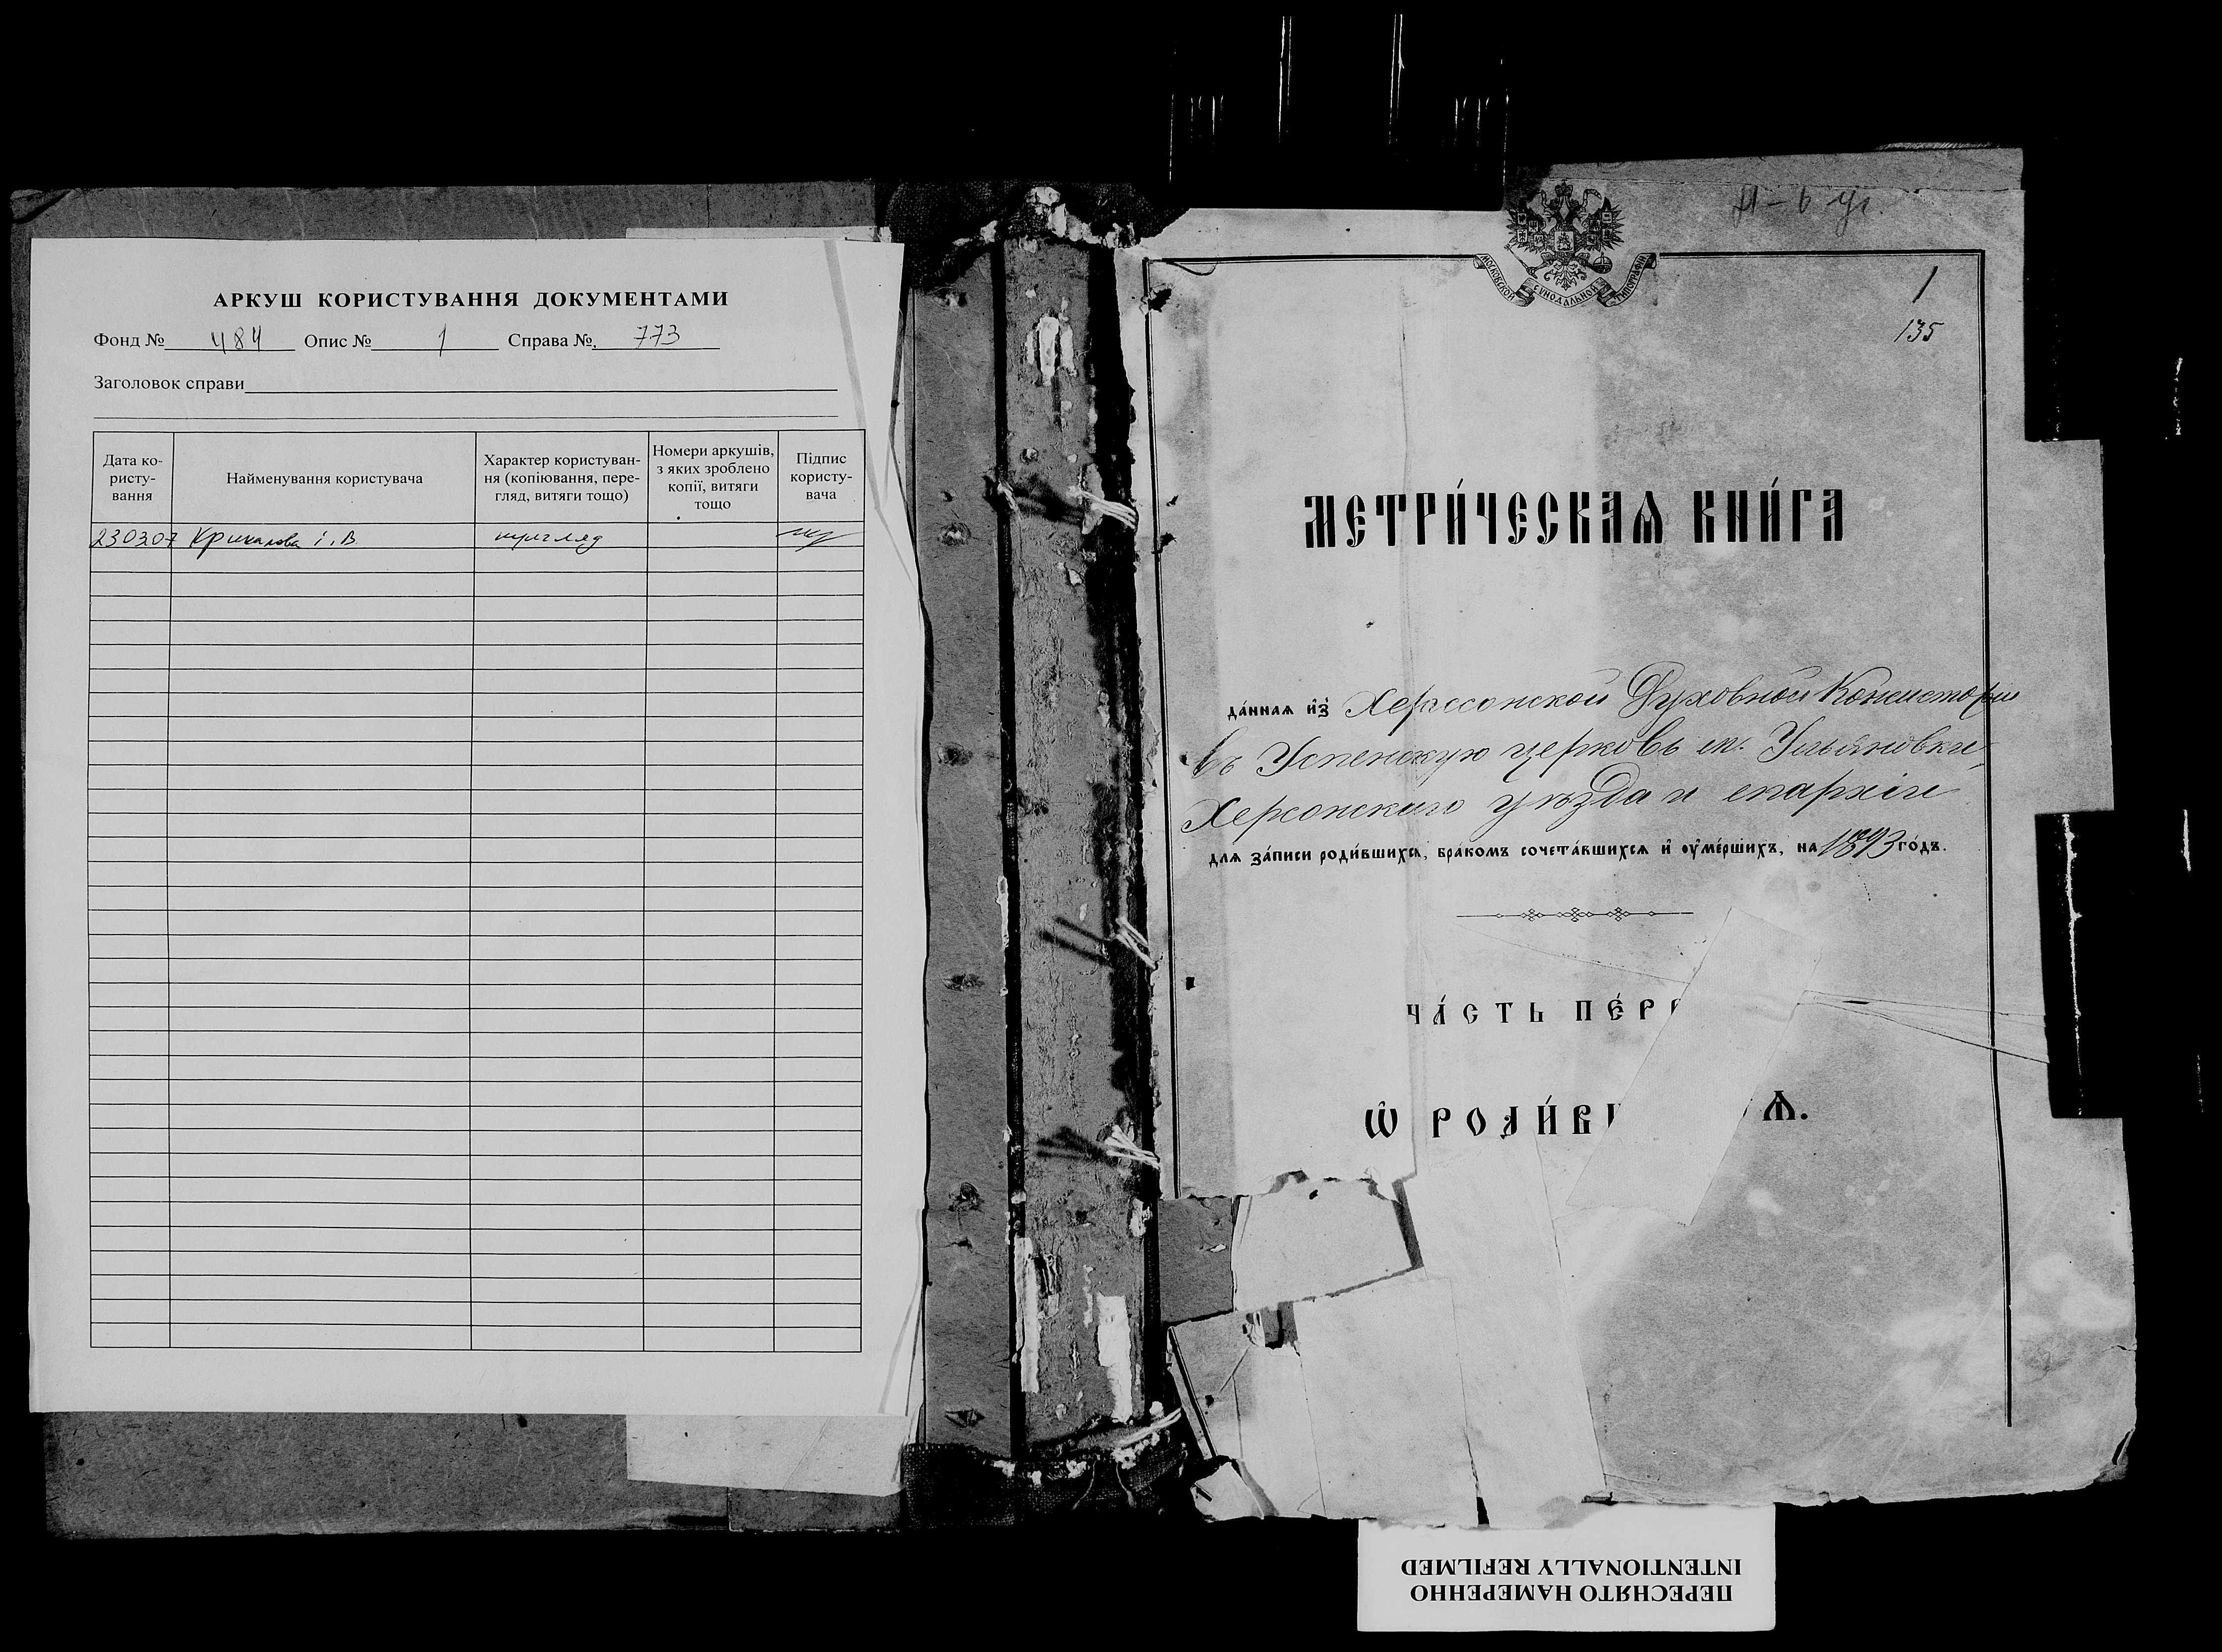 АРКУШ КОРИСТУВАННЯ ДОКУМЕНТАМИ
Фонд № 484 Опис № 1 Справа № 773
Заголовок справи
Дата ко-
ристу-
вання
Найменування користувача
Характер користуван-
ня (копіювання, пере-
гляд, витяги тощо)
Номери аркушів,
з яких зроблено
копії, витяги
тощо
Підпис
користу-
вача
230307 І.В. перегляд
МОСКОВСКОЙ СѴНОДАЛЬНОЙ ТИПОГРАФІИ
1
135
МЕТРИ́ЧЕСКАѦ КНИ́ГА
да́ннаѧ и҆з̾ Херссонской Духовной Консисторіи
въ Успенскую церковь м. Ульяновки,
Херсонскаго уѣзда и епархіи
длѧ за́писи роди́вшихсѧ, бра́комъ сочета́вшихсѧ и҆ ᲂу҆ме́ршихъ, на 1893 го́дъ.
ЧА́СТЬ ПЕ́Р
Ѡ҆ РОДИ́В Ѧ.
ПЕРЕСНЯТО НАМЕРЕННО
INTENTIONALLY REFILMED